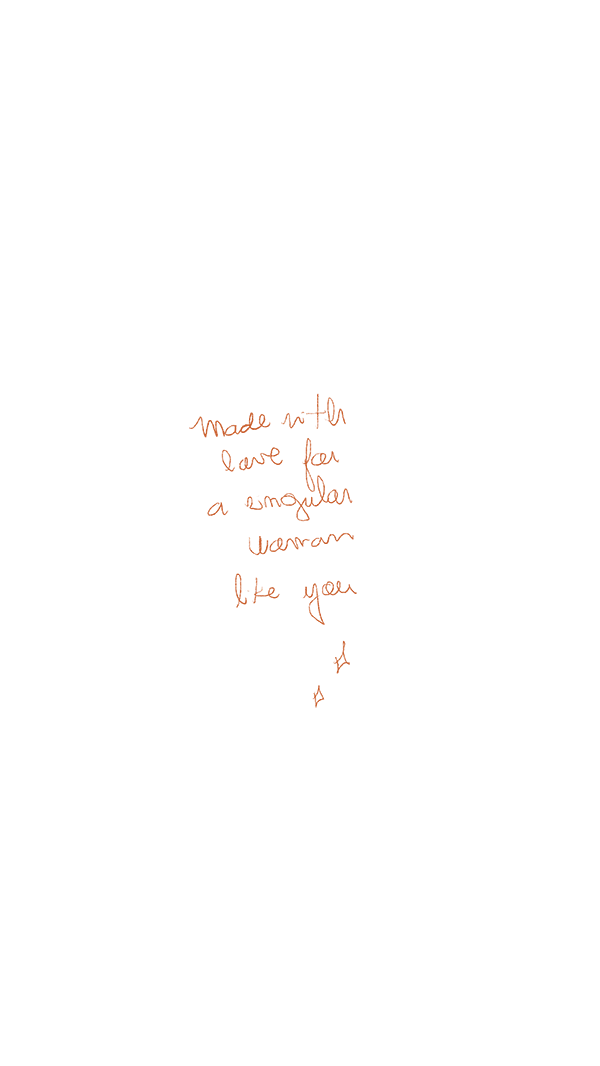 Made with
love for
a singular
woman
like you